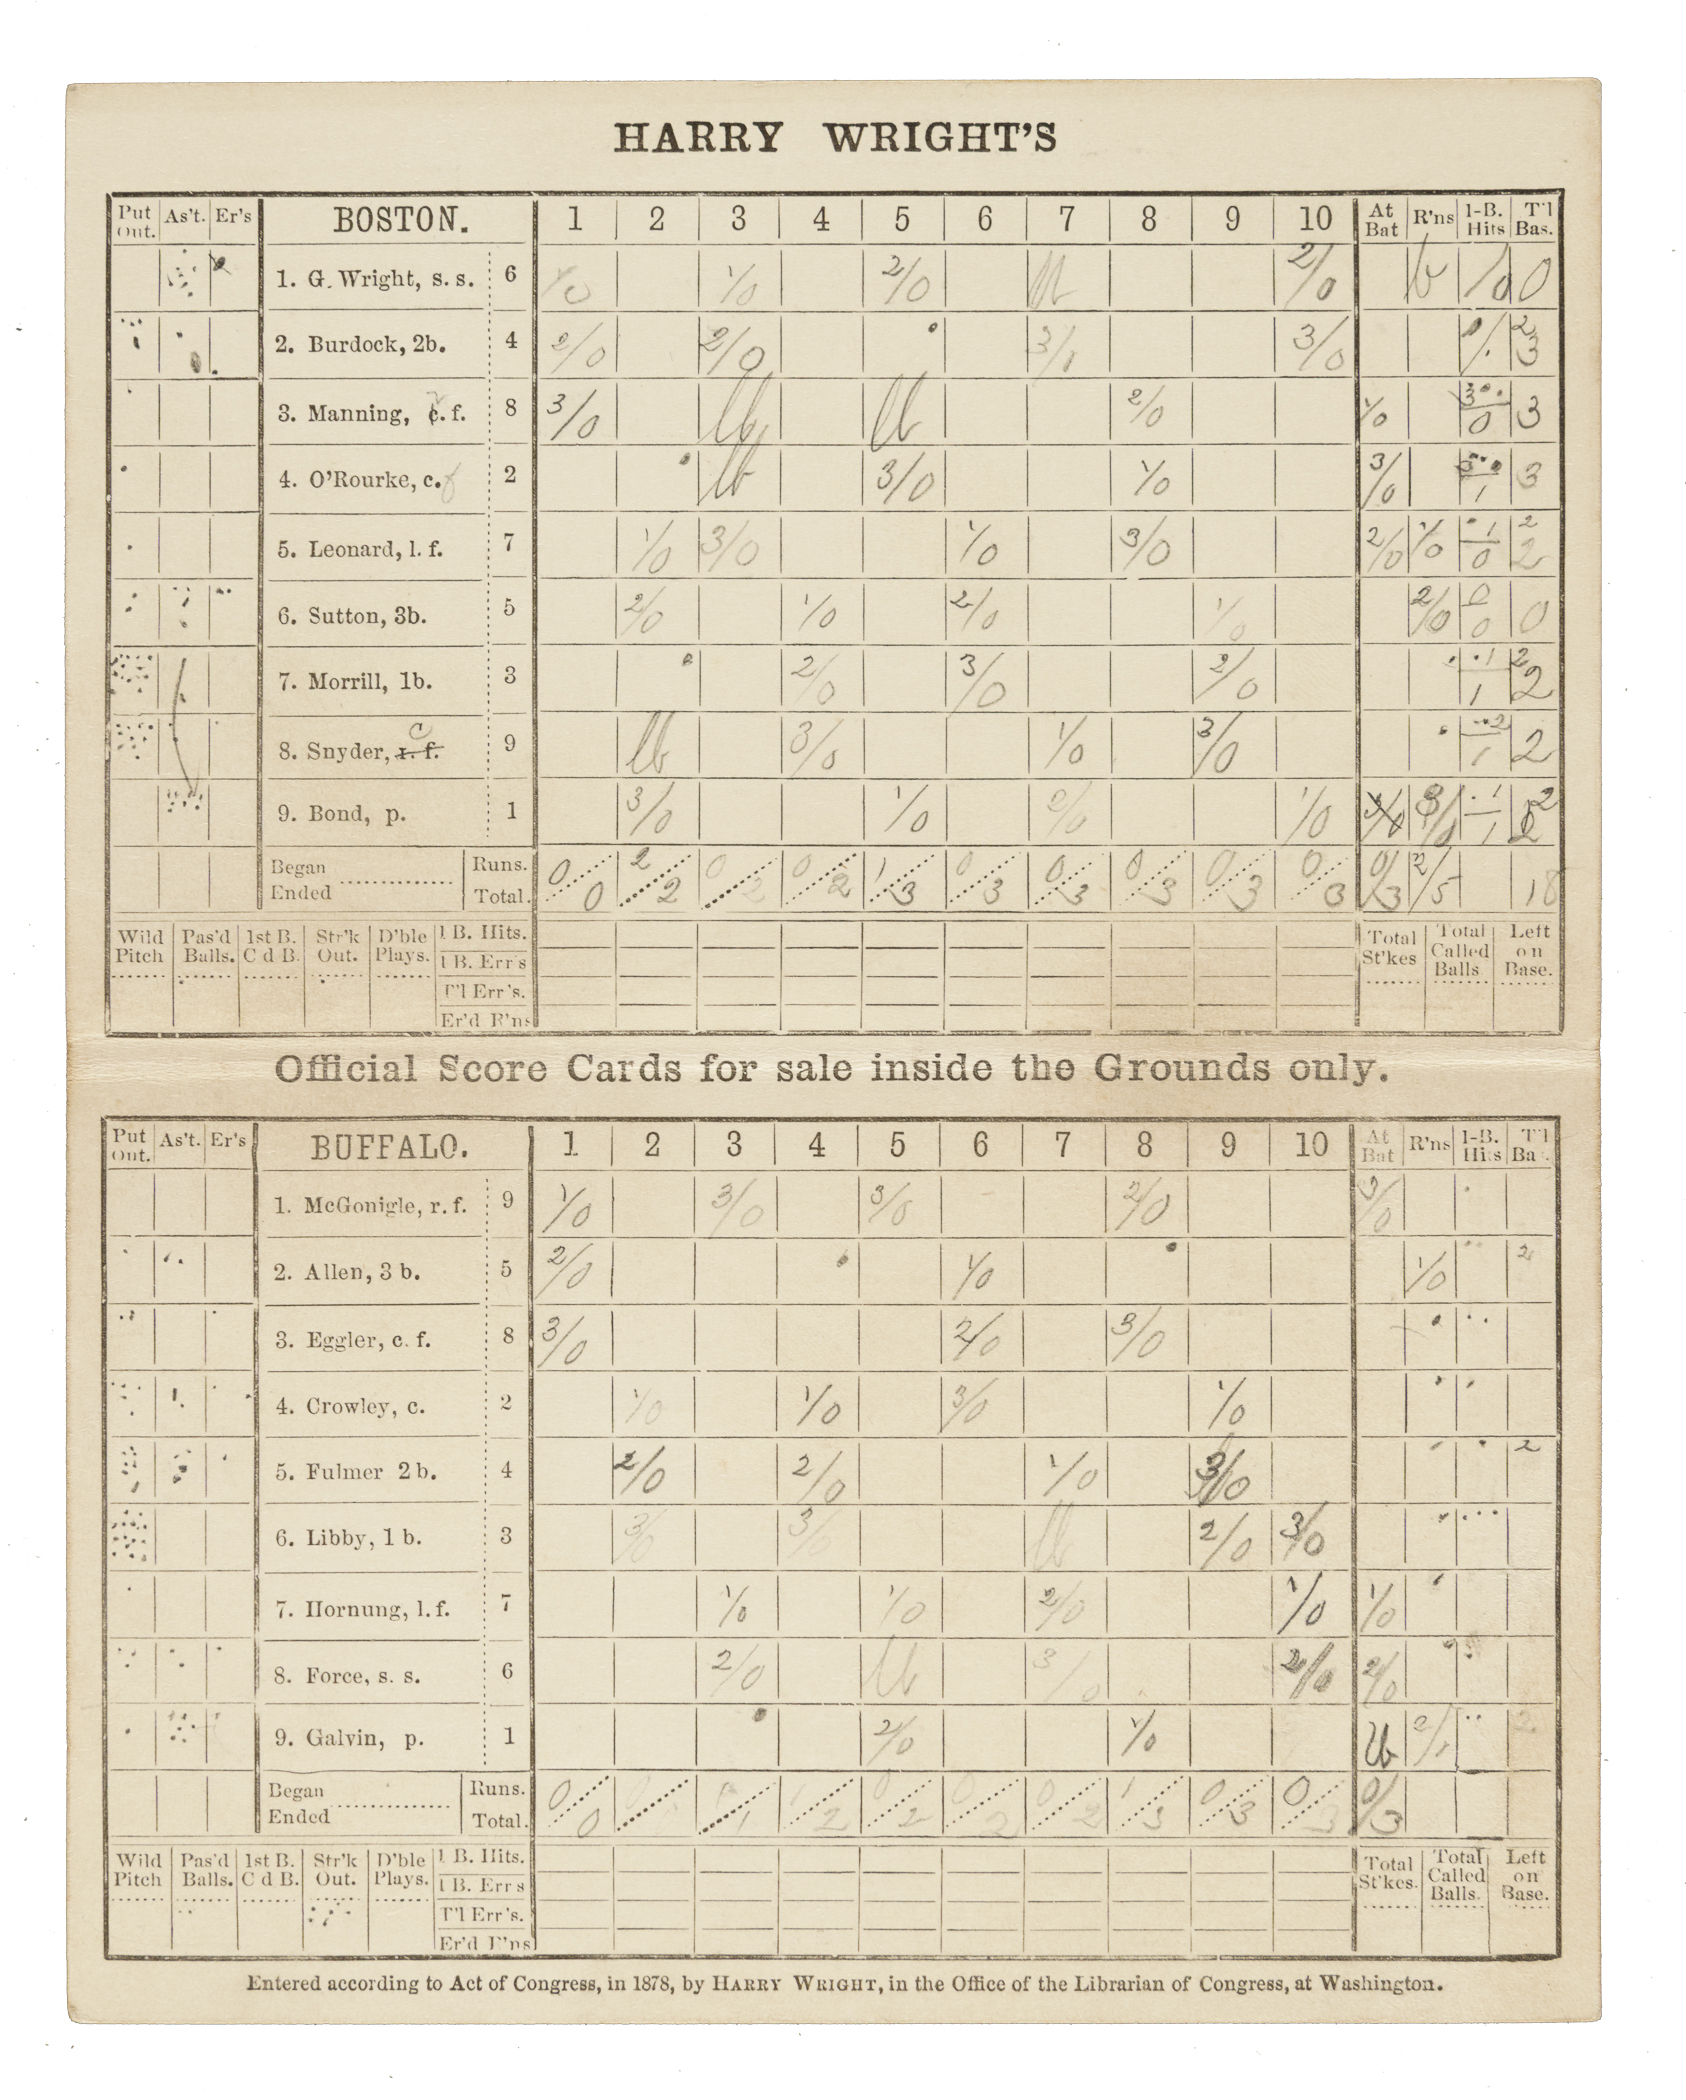 HARRY WRIGHT'S
Put Out. As't. Er's BOSTON. 1 2 3 4 5 6 7 8 9 10 At Bat R'ns 1-B. Hits T'l Bas.
1. G. Wright, s. s. 6 1/0 1/0 2/0 lb 2/0
2. Burdock, 2b. 4 2/0 2/0 3/1 3/0
3. Manning, c. f. 8 3/0 lb lb 2/0 1/0 3
4. O'Rourke, c. f 2 lb 3/0 1/0 3/0 3
5. Leonard, l. f. 7 1/0 3/0 1/0 3/0 2/0 1/0
6. Sutton, 3b. 5 2/0 1/0 2/0 1/0 2/0 0
7. Morrill, 1b. 3 2/0 3/0 2/0
8. Snyder, r. f. c 9 lb 3/0 1/0 3/0 2
9. Bond, p. 1 3/0 1/0 2/0 1/0
Began Ended Runs. 0 2 0 0 1 0 0 0 0 0 0 2
Total. 0 2 2 2 3 3 3 3 3 3 3 5 18
Wild Pitch Pas'd Balls. 1st B. C d B. Str'k Out. D'ble Plays. 1 B. Hits. Total St'kes Total Called Balls Left on Base.
1 B. Err's
T'l Err's.
Er'd R'ns
Official Score Cards for sale inside the Grounds only.
Put Out. As't. Er's BUFFALO. 1 2 3 4 5 6 7 8 9 10 At Bat R'ns 1-B. Hits T'l Bas.
1. McGonigle, r. f. 9 1/0 3/0 3/0 2/0 3/0
2. Allen, 3 b. 5 2/0 1/0 1/0 2
3. Eggler, c. f. 8 3/0 2/0 3/0
4. Crowley, c. 2 1/0 1/0 3/0 1/0
5. Fulmer 2 b. 4 2/0 2/0 1/0 3/0 2
6. Libby, 1 b. 3 3/0 3/0 lb 2/0 3/0
7. Hornung, l. f. 7 1/0 1/0 2/0 1/0 1/0
8. Force, s. s. 6 2/0 lb 3/0 2/0 2/0
9. Galvin, p. 1 2/0 1/0 lb 2/1
Began Ended Runs. 0 1 0 0 0 1 0 0 0
Total. 0 1 2 2 2 2 3 3 3 3
Wild Pitch Pas'd Balls. 1st B. C d B. Str'k Out. D'ble Plays. 1 B. Hits. Total St'kes. Total Called Balls. Left on Base.
1 B. Err's
T'l Err's.
Er'd R'ns
Entered according to Act of Congress, in 1878, by HARRY WRIGHT, in the Office of the Librarian of Congress, at Washington.